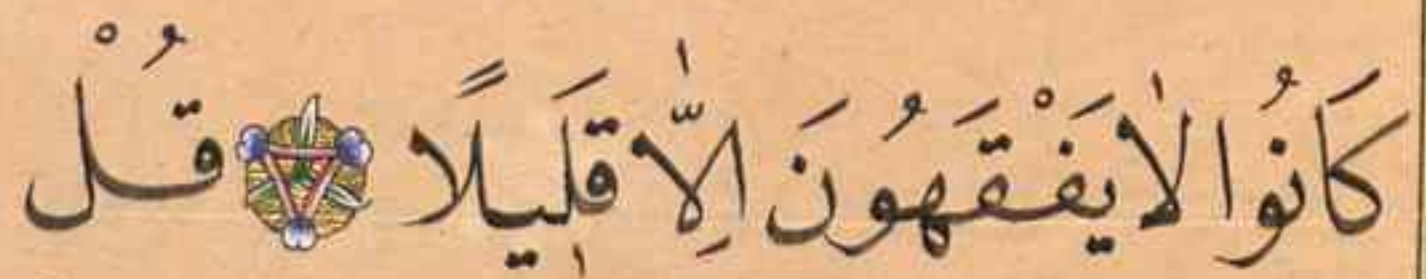 كَانُوا لَا يَفْقَهُونَ اِلَّا قَلٖيلًا قُلْ